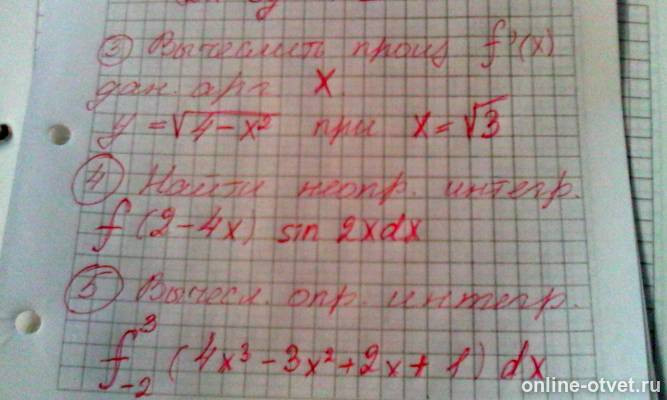 ③ Вычеслить произ f'(x)
дан. арг X.
y = √4-x² при x = √3
④ Найти неопр. интегр.
f (2-4x) sin 2xdx
⑤ Вычесл. опр. интегр.
f₋₂³ (4x³-3x²+2x+1) dx
online-otvet.ru